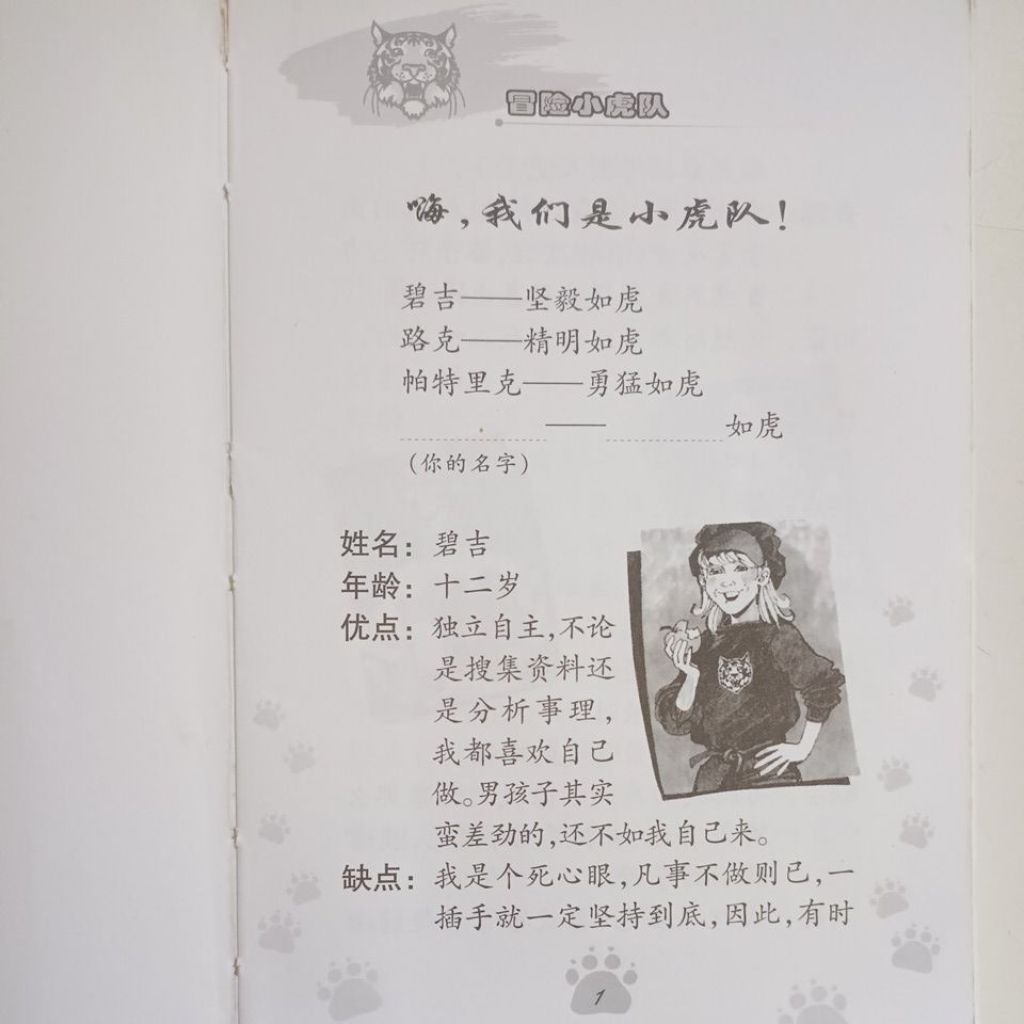 冒险小虎队
嗨,我们是小虎队!
碧吉——坚毅如虎
路克——精明如虎
帕特里克——勇猛如虎
——如虎
(你的名字)
姓名: 碧吉
年龄: 十二岁
优点: 独立自主,不论
是搜集资料还
是分析事理,
我都喜欢自己
做。男孩子其实
蛮差劲的,还不如我自己来。
缺点: 我是个死心眼,凡事不做则已,一
插手就一定坚持到底,因此,有时
1